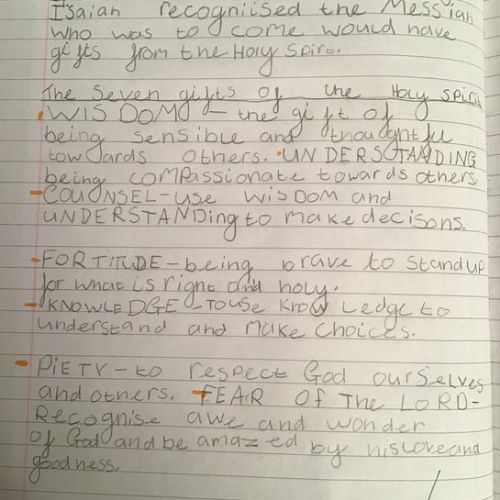 Isaiah recogniised the Messiah
who was to come would have
gifts from the Holy Spiro.
The seven gifts of the Holy spirit
WISDOM - the gift of
being sensible and thoughtful
towards others. UNDERSTANDING
being compassionate towards others
- COUNSEL - use wisDOM and
UNDERSTANDing to make decisons.
- FORTITUDE - being brave to stand up
for what is right and holy.
- KNOWLEDGE - to use know ledge to
understand and make choices.
- PiETY - to respect God ourselves
and others. - FEAR OF THE LORD -
Recognise awe and wonder
of God and be amazed by his love and
goodness.